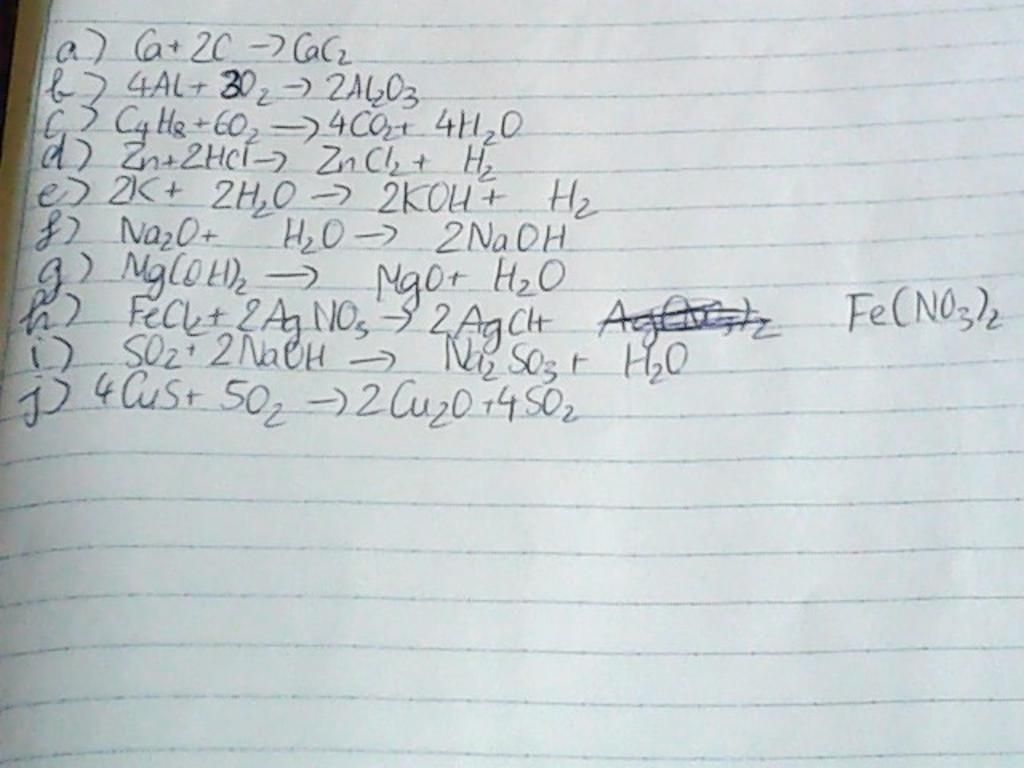 a) Ca + 2C → CaC₂
b) 4Al + 3O₂ → 2Al₂O₃
c) C₄H₈ + 6O₂ → 4CO₂ + 4H₂O
d) Zn + 2HCl → ZnCl₂ + H₂
e) 2K + 2H₂O → 2KOH + H₂
f) Na₂O + H₂O → 2NaOH
g) Mg(OH)₂ → MgO + H₂O
h) FeCl₂ + 2AgNO₃ → 2AgCl + Fe(NO₃)₂
i) SO₂ + 2NaOH → Na₂SO₃ + H₂O
j) 4CuS + 5O₂ → 2Cu₂O + 4SO₂